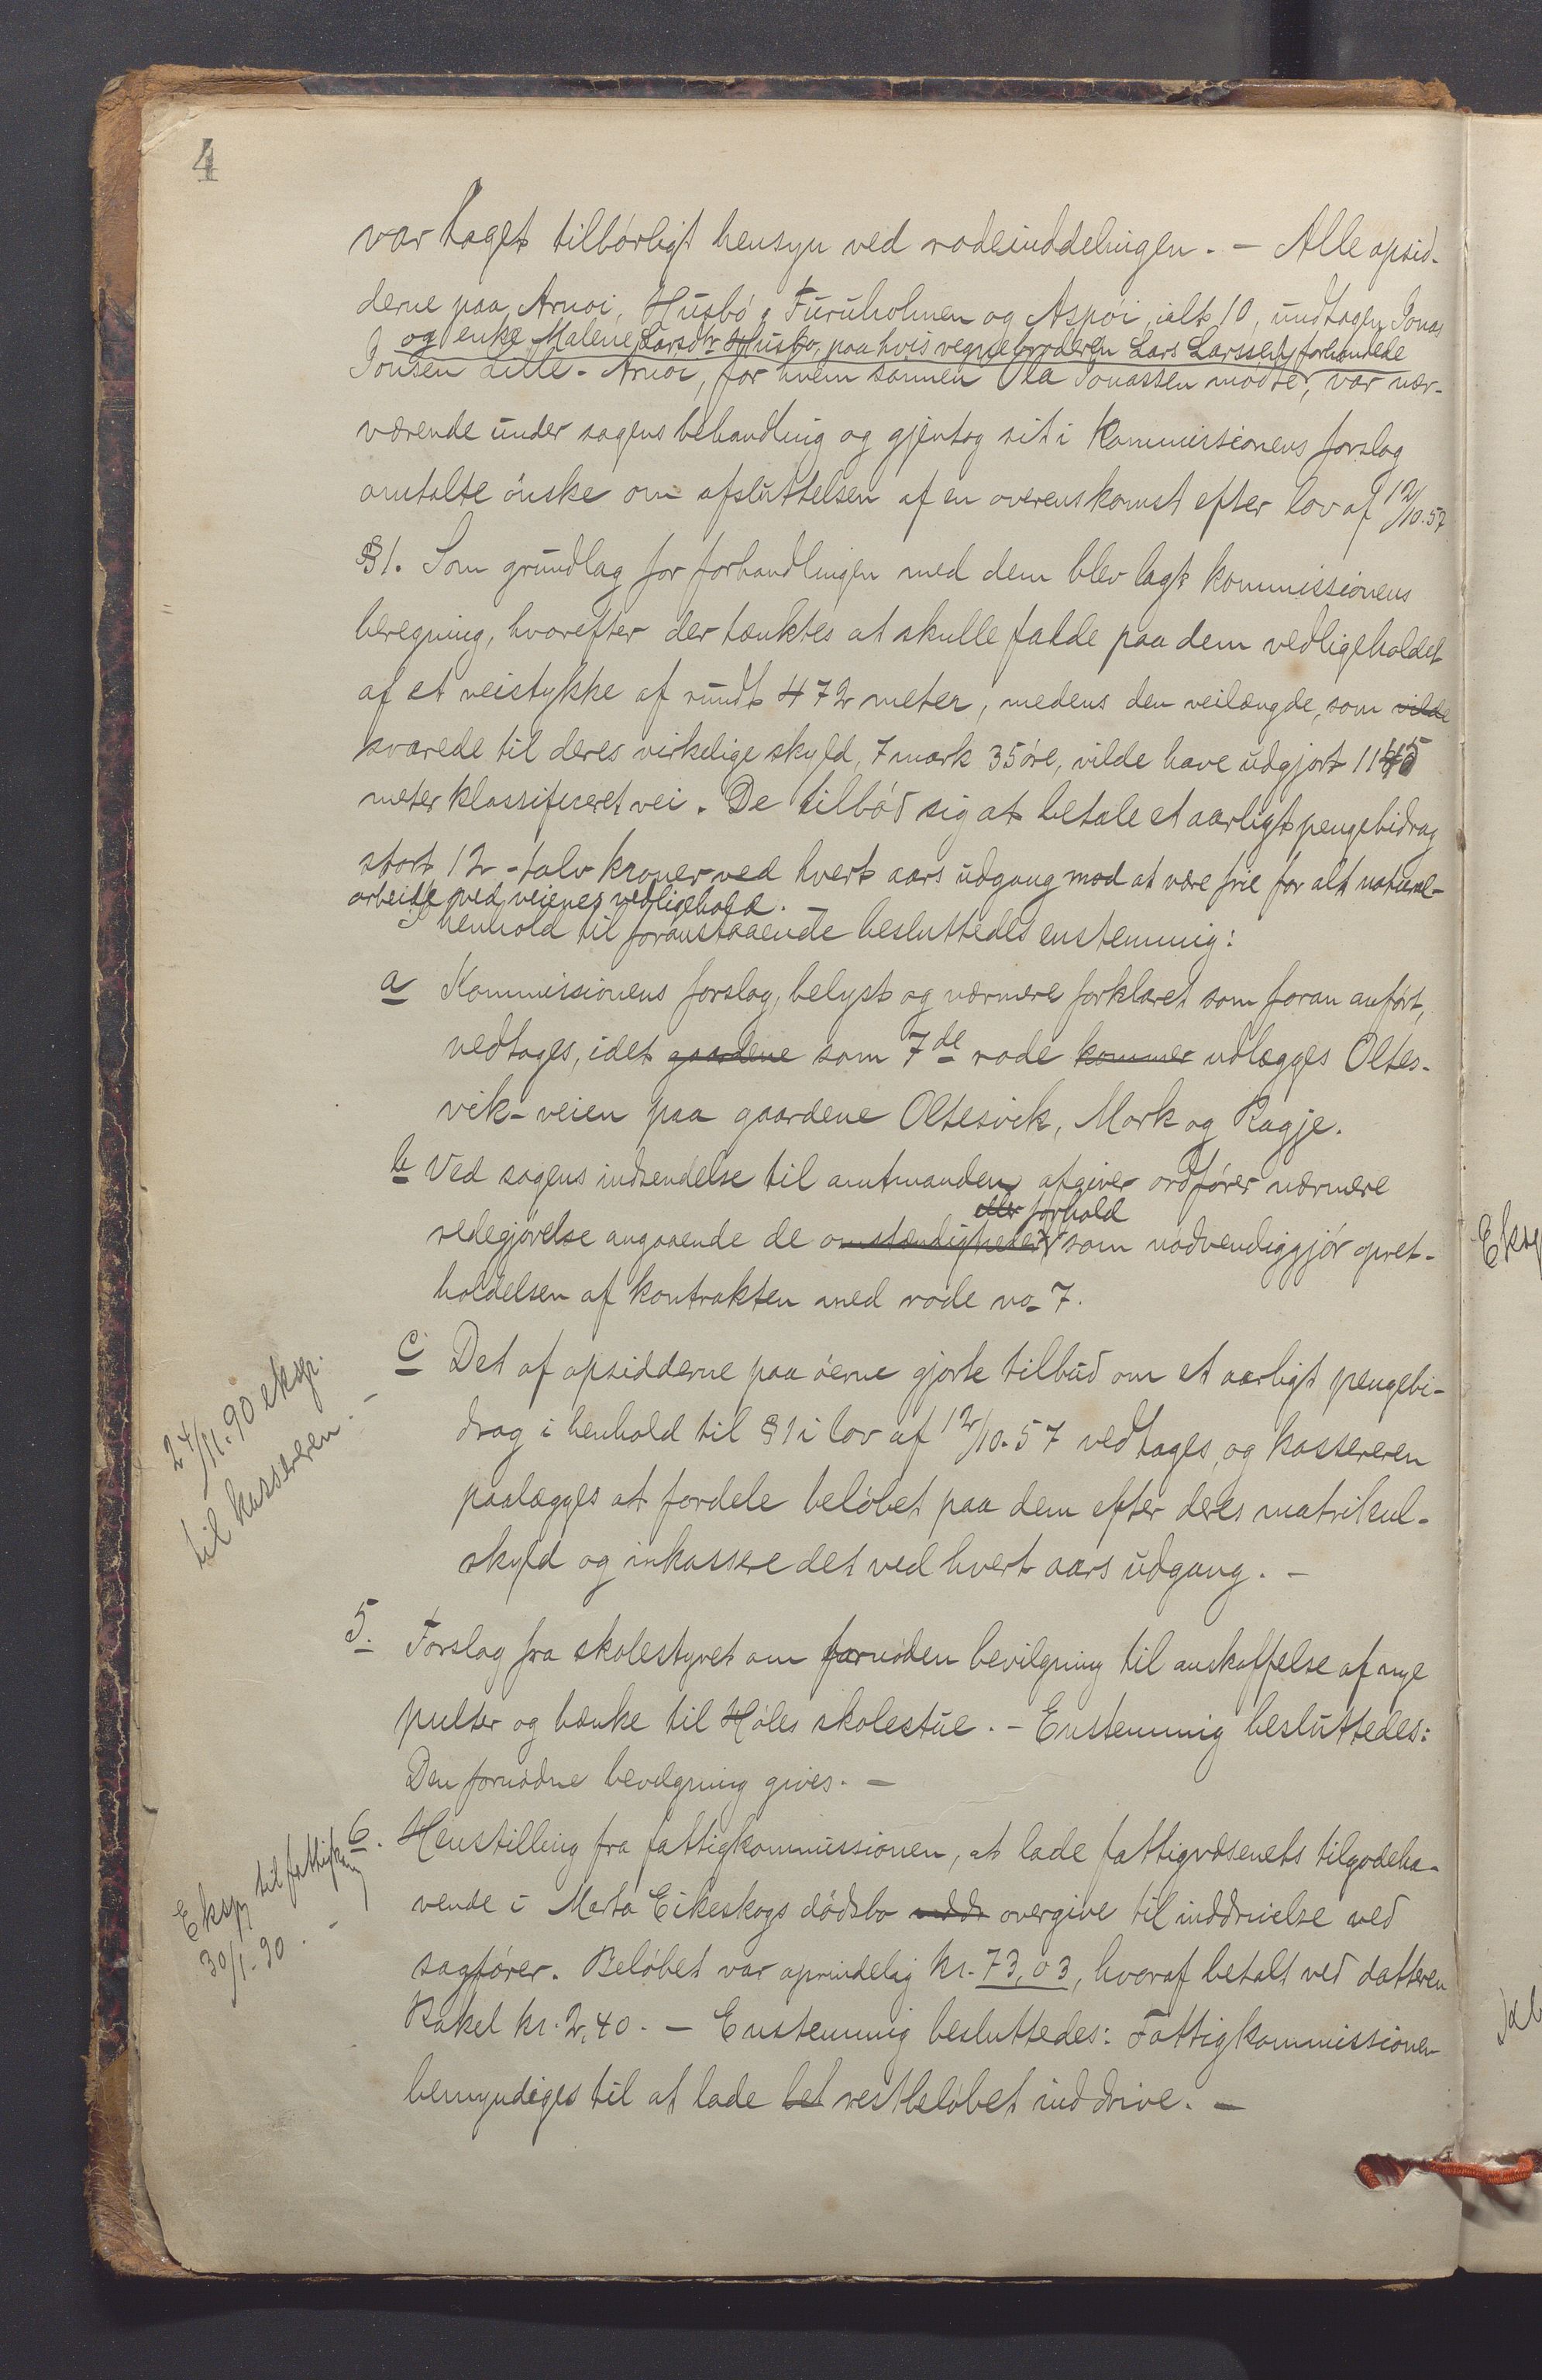 4
var taget tilbórligt hensyn ved rodeinddelingen. – Alle opsid-
derne paa Arnøi, Husbó, Furuholmen og Aspöi, ialt 10, undtagen Jonas
og enke Malene Larsdtr Husbo, paa hvis vegne broderen Lars Larssen forhandlede
Jonsen Lille-Arnøi, for hvem sønnen Ola Jonassen mødte, var nær-
værende under sagens behandling og gjentog sit i Kommissionens forslag
omtalte ónske om afsluttelsen af en overenskomst efter lov af 12/10.57
§1. Som grundlag for forhandlingen med dem blev lagt kommissionens
beregning, hvorefter der tænktes at skulle falde paa dem vedligeholdet
af et veistykke af rundt 472 meter, medens den veilængde, som vilde
svarede til deres virkelige skyld, 7 mark 35 óre, vilde have udgjort 1145
meter klassificeret vei. De tilbód sig at betale et aarligt pengebidrag
stort 12 - tolv kroner ved hvert aars udgang mod at være frie for alt natural-
arbeide ved veienes vedligehold. –
I henhold til foranstaaende besluttedes enstemmig:
a Kommissionens forslag, belyst og nærmere forklaret som foran anfórt,
vedtages, idet gaardene som 7de rode kommer udlægges Oltes-
vik-veien paa gaardene Oltesvik, Mork og Ragje.
b Ved sagens indsendelse til amtmanden afgiver ordfórer nærmere
eller forhold
redegjórelse angaaende de omstændigheder som nødvendiggjór opret-
holdelsen af kontrakten med rode no 7.
c Det af opsidderne paa óerne gjorte tilbud om et aarligt pengebi-
drag i henhold til §1 i lov af 12/10.57 vedtages, og kassereren
paalægges at fordele belóbet paa dem efter deres matrikul-
skyld og inkassere det ved hvert aars udgang. –
24/11.90 eksp.
til kassereren. –
5. Forslag fra skolestyret om fornóden bevilgning til anskaffelse af nye
pulter og bænke til Høles skolestue. – Enstemmig besluttedes:
Den fornódne bevilgning gives. –
6. Henstilling fra fattigkommissionen, at lade fattigvæsenets tilgodeha-
vende i Marta Eikeskogs dódsbo overgive til inddrivelse ved
sagfórer. Belóbet var oprindelig kr. 73,03, hvoraf betalt ved datteren
Rakel kr. 2,40. – Enstemmig besluttedes: Fattigkommissionen
bemyndiges til at lade bel restbelóbet inddrive. –
Eksp til fattigkom
30/1-90. –